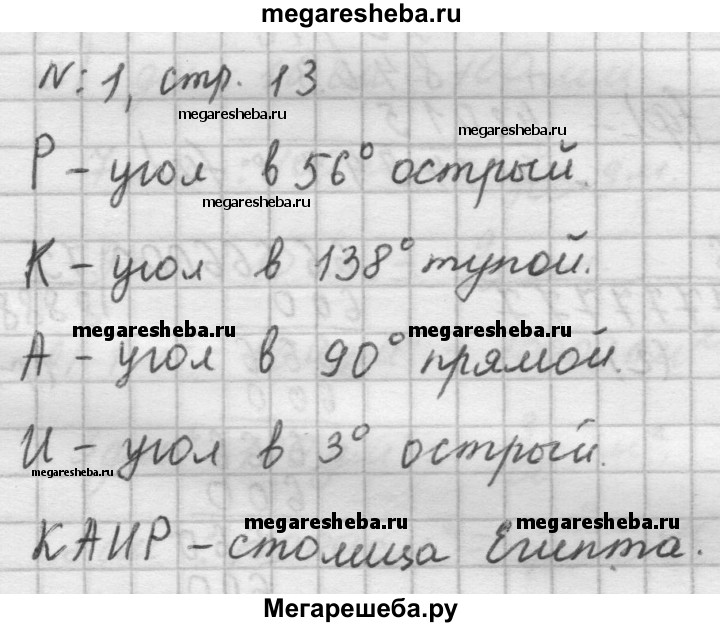 megaresheba.ru
N: 1, стр. 13
megaresheba.ru
megaresheba.ru
Р – угол в 56° острый.
megaresheba.ru
К – угол в 138° тупой.
megaresheba.ru megaresheba.ru
А – угол в 90° прямой.
И – угол в 3° острый.
megaresheba.ru
megaresheba.ru megaresheba.ru
КАИР – столица Египта.
Мегарешеба.ру